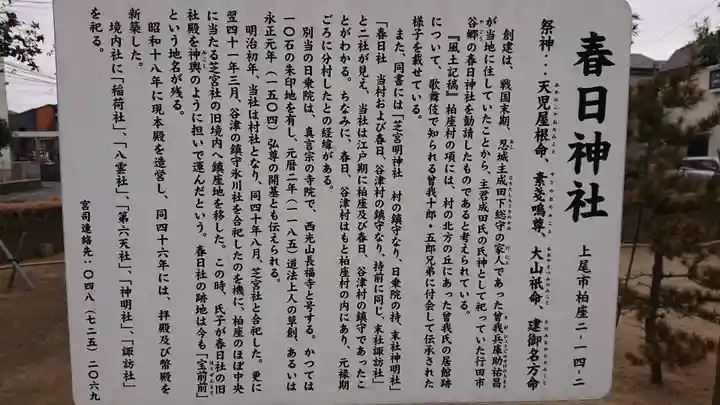 春日神社
上尾市柏座二-一四-二
祭神・・天児屋根命、素戔嗚尊、大山祇命、建御名方命
創建は、戦国末期、忍城主成田下総守の家人であった曽我兵庫助祐昌
が当地に住していたことから、主君成田氏の氏神として祀っていた行田市
谷郷の春日神社を勧請したものであると考えられている。
『風土記稿』柏座村の項には、村の北方の丘にあった曽我氏の居館跡
について、歌舞伎で知られる曽我十郎・五郎兄弟に付会して伝承された
様子を載せている。
また、同書には「芝宮明神社 村の鎮守なり、日乗院の持、末社神明社」
「春日社 当村および春日、谷津村の鎮守なり、持前に同じ、末社諏訪社」
と二社が見え、当社は江戸期に柏座及び春日、谷津村の鎮守であったこ
とがわかる。ちなみに、春日、谷津村はもと柏座村の内にあり、元禄期
ごろに分村したとの経緯がある。
別当の日乗院は、真言宗の寺院で、西光山長福寺と号する。かつては
一〇石の朱印地を有し、元暦二年(一一八五)道法上人の草創、あるいは
永正元年(一五〇四)弘尊の開基とも伝えられる。
明治初年、当社は村社となり、同四十年八月、芝宮社と合祀した。更に
翌四十一年三月、谷津の鎮守氷川社を合祀したのを機に、柏座のほぼ中央
に当たる芝宮社の旧境内へ鎮座地を移した。この時、氏子が春日社の旧
社殿を神輿のように担いで運んだという。春日社の跡地は今も「宝前前」
という地名が残る。
昭和十八年に現本殿を造営し、同四十六年には、拝殿及び幣殿を
新築した。
境内社に「稲荷社」、「八雲社」、「第六天社」、「神明社」、「諏訪社」
を祀る。
宮司連絡先:〇四八(七二五)二〇六九